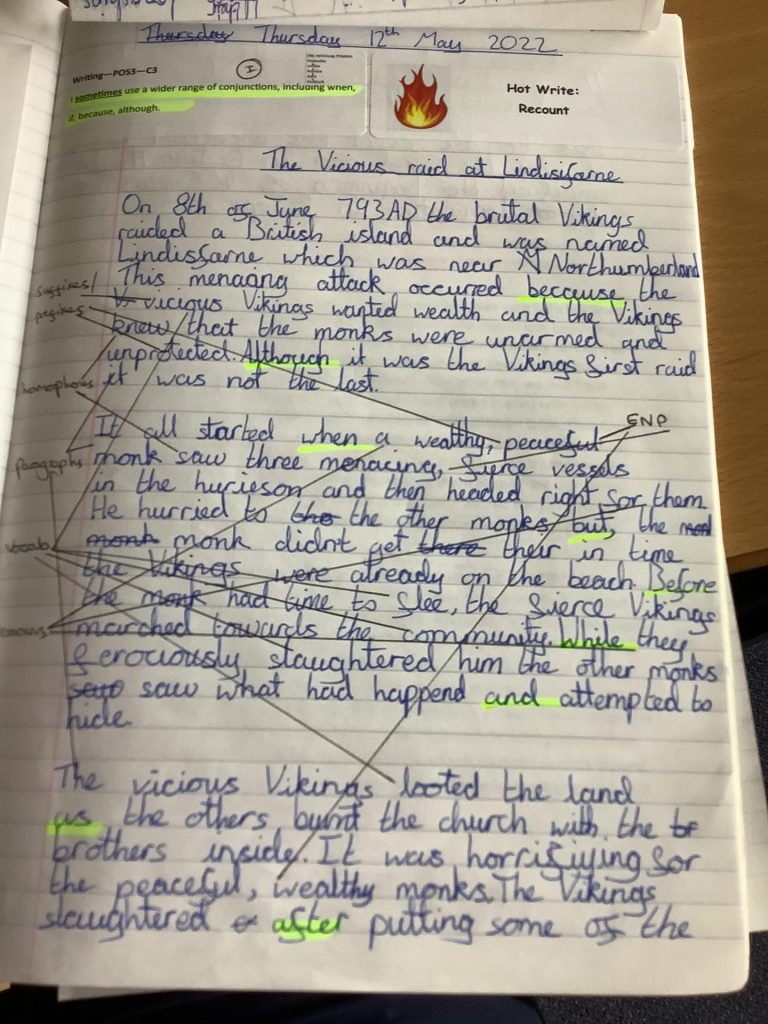 Thursday Thursday 12th May 2022
Writing—POS3—C3
I
I sometimes use a wider range of conjunctions, including when,
if, because, although.
Hot Write:
Recount
The Vicious raid at Lindisifarne
On 8th of June 793AD the brutal Vikings
raided a British island and was named
Lindisfarne which was near N Northumberland
This menacing attack occurred because the
suffixes/
prefixes
V vicious Vikings wanted wealth and the Vikings
knew that the monks were unarmed and
unprotected. Although it was the Vikings first raid
homophones
it was not the last.
ENP
It all started when a wealthy, peaceful
paragraphs
monk saw three menacing, fierce vessels
in the hurieson and then headed right for them
He hurried to the the other monks but, the
vocab
monk monk didnt get there their in time
the Vikings were already on the beach. Before
the monk had time to flee, the fierce Vikings
marched towards the community. While they
ferociously slaughtered him the other monks
saw saw what had happend and attempted to
hide.
The vicious Vikings looted the land
as the others burnt the church with the br
brothers inside. It was horrifiying for
the peaceful, wealthy monks. The Vikings
slaughtered after putting some of the